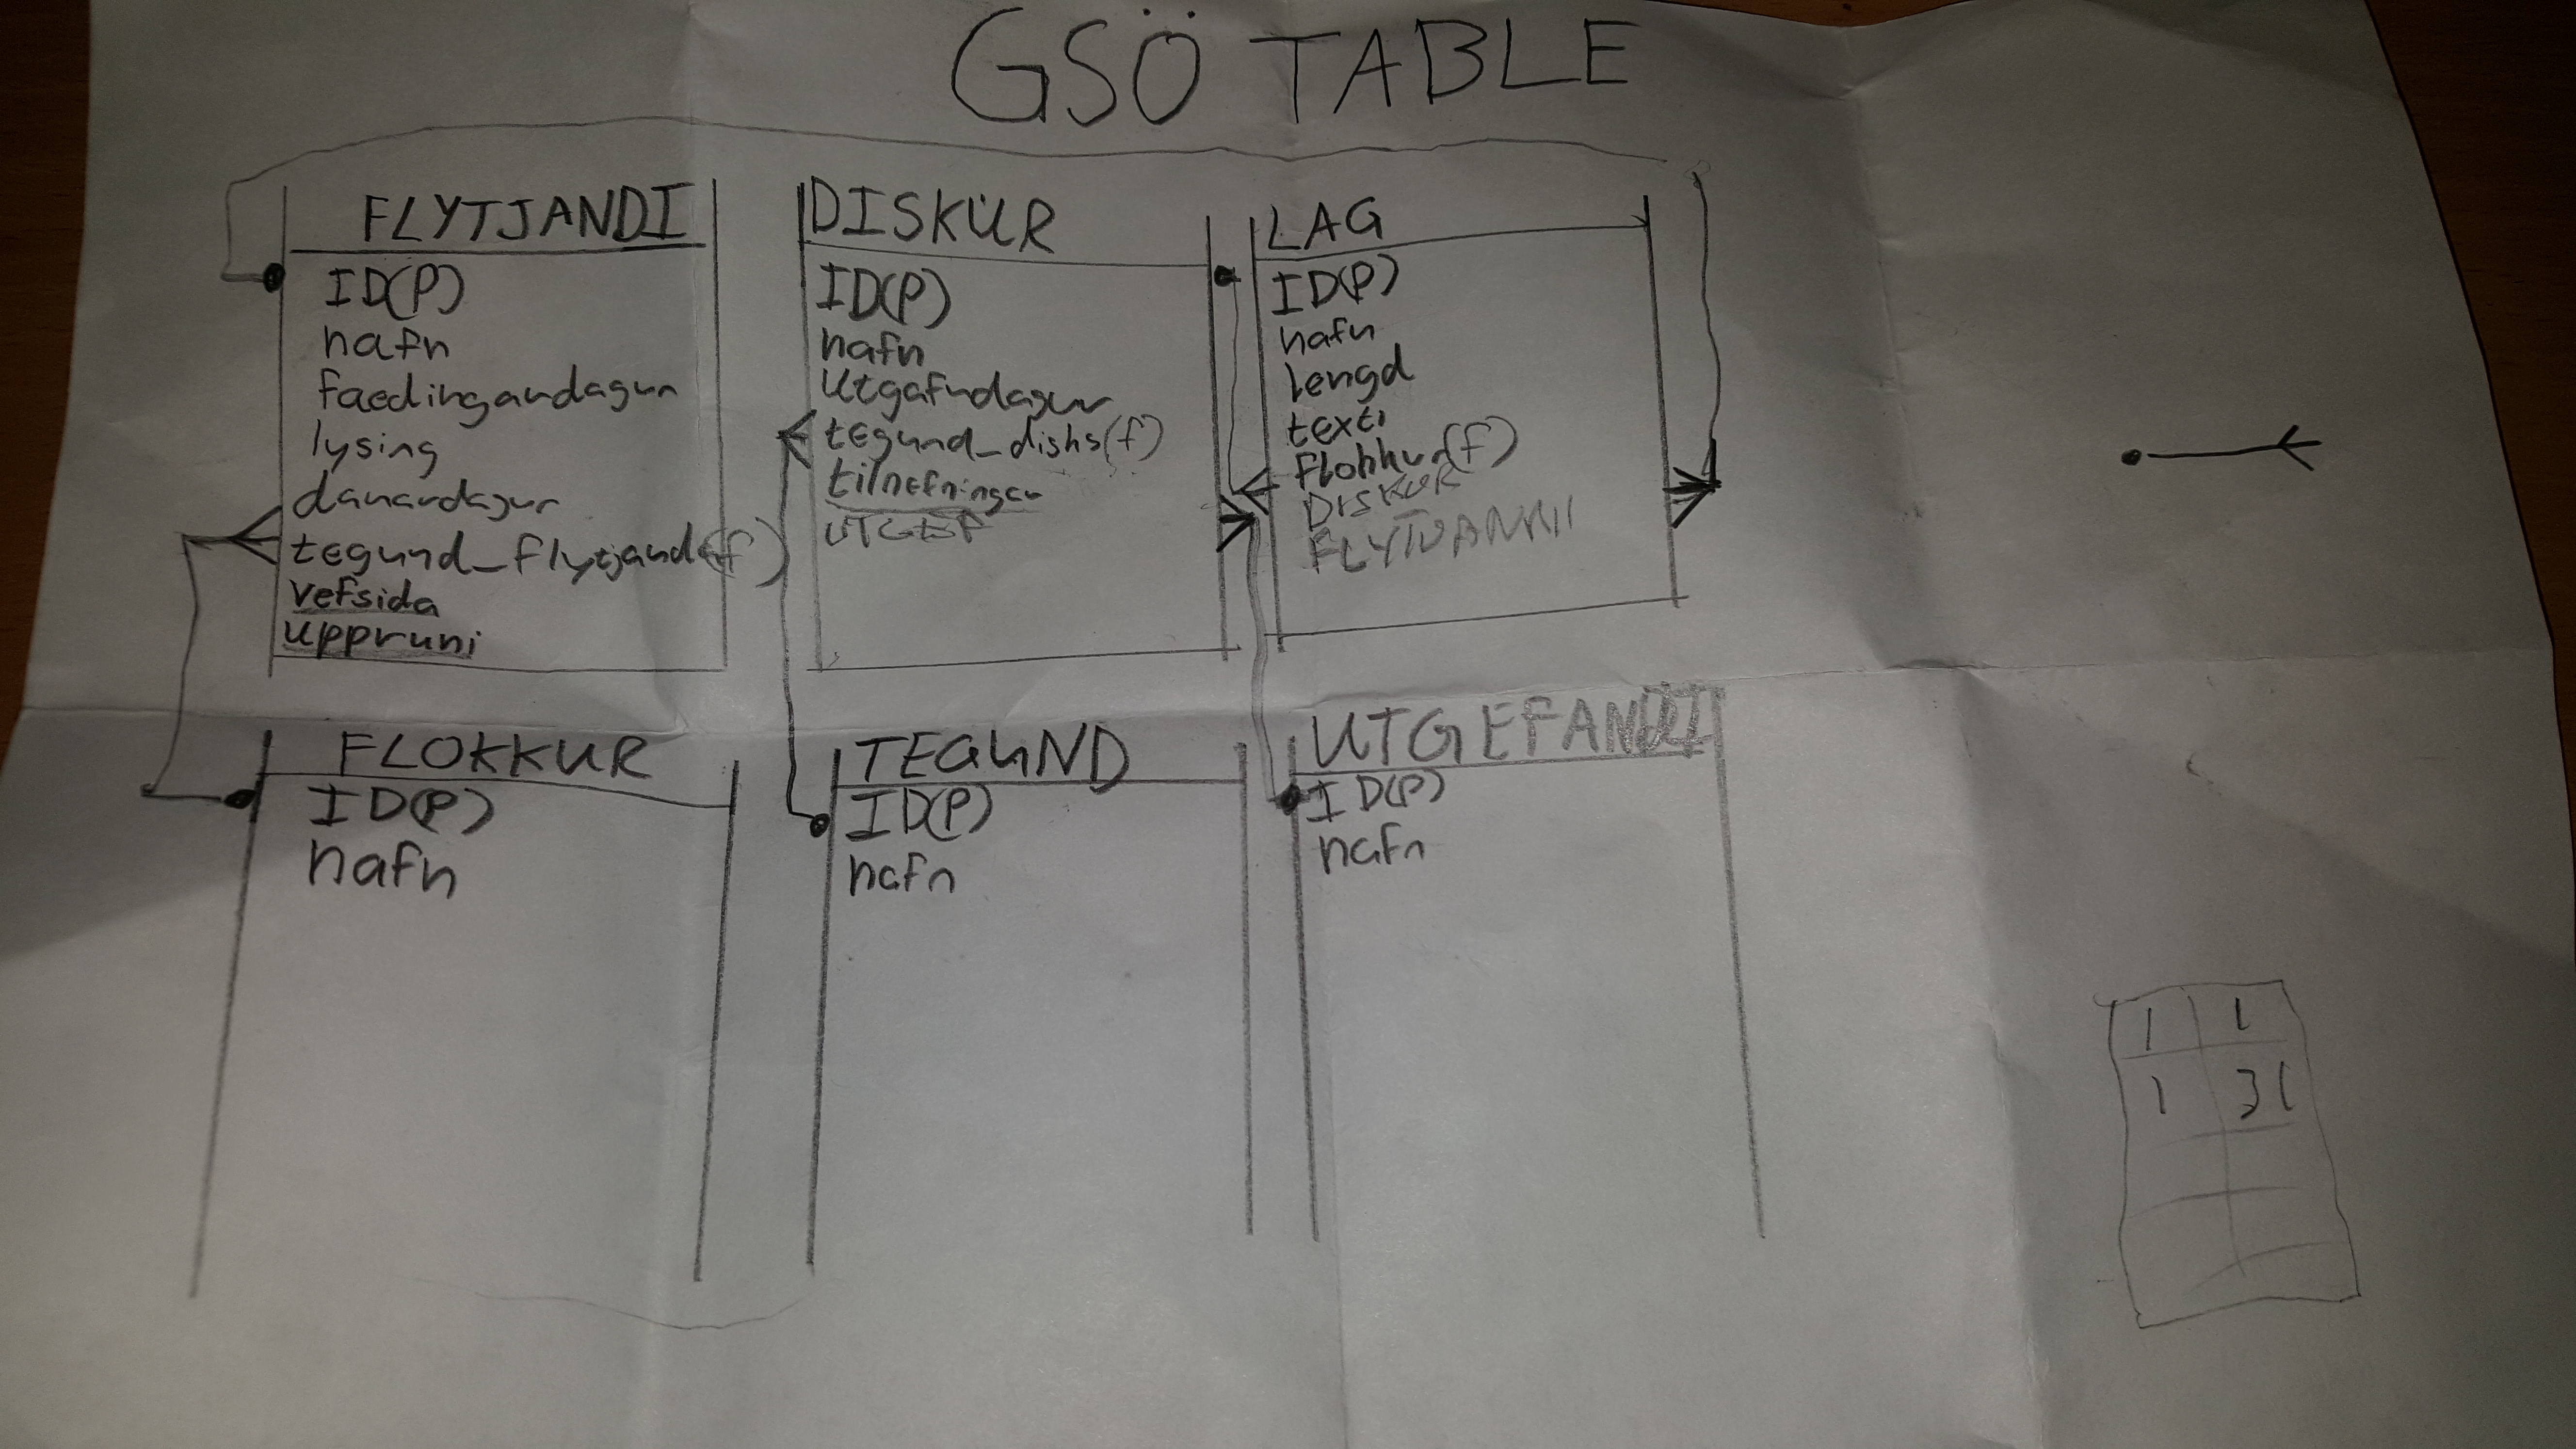 GSÖ TABLE
FLYTJANDI
ID(P)
nafn
faedingardagur
lysing
danardagur
tegund_flytjanda(f)
vefsida
uppruni
DISKUR
ID(P)
nafn
utgafudagur
tegund_disks(f)
tilnefningar
LAG
ID(P)
nafn
lengd
texti
flokkur(f)
DISKUR
FLOKKUR
ID(P)
nafn
TEGUND
ID(P)
nafn
UTGEFANDI
ID(P)
nafn